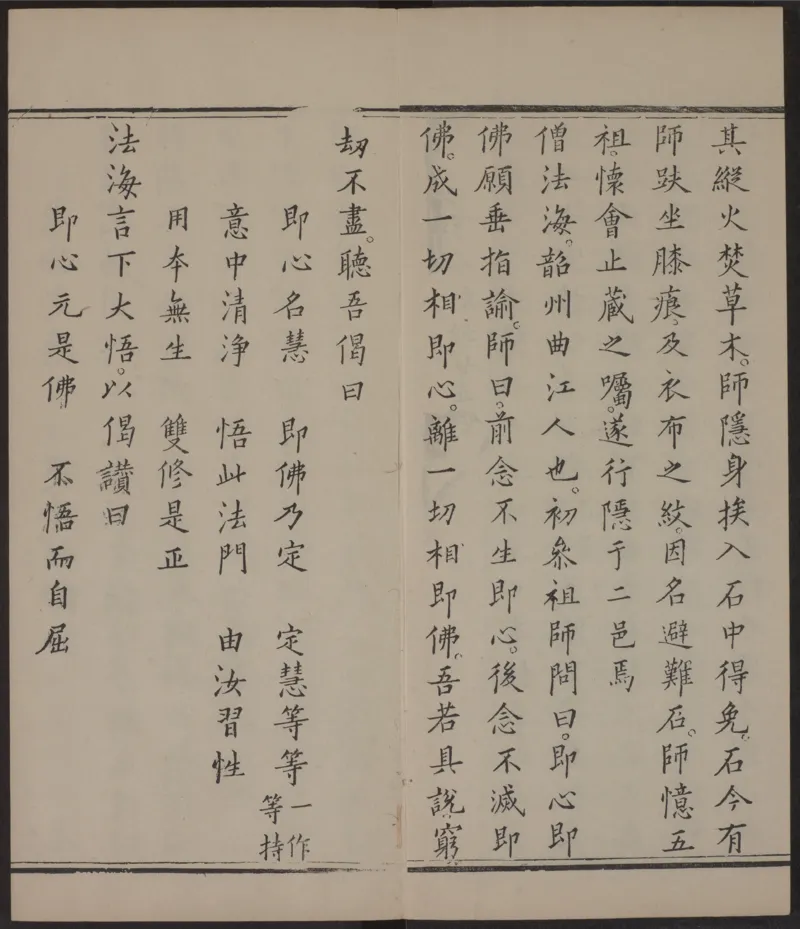 其縱火焚草木。師隱身挨入石中得免。石今有
師趺坐膝痕、及衣布之紋。因名避難石。師憶五
祖。懷會止藏之囑。遂行隱于二邑焉
僧法海。韶州曲江人也。初叅祖師問曰。即心即
佛願垂指諭。師曰。前念不生即心。後念不滅即
佛。成一切相即心。離一切相即佛。吾若具說、窮
劫不盡。聽吾偈曰
即心名慧　即佛乃定　定慧等等 一作等持
意中清淨　悟此法門　由汝習性
用本無生　雙修是正
法海言下大悟。以偈讃曰
即心元是佛　不悟而自屈